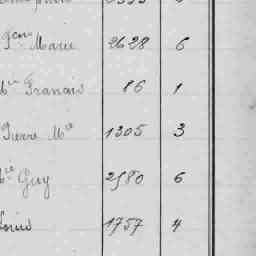 Jean Marie 2628 6
Francois 86 1
Pierre Me 1305 3
Guy 2580 6
Louis 1757 4